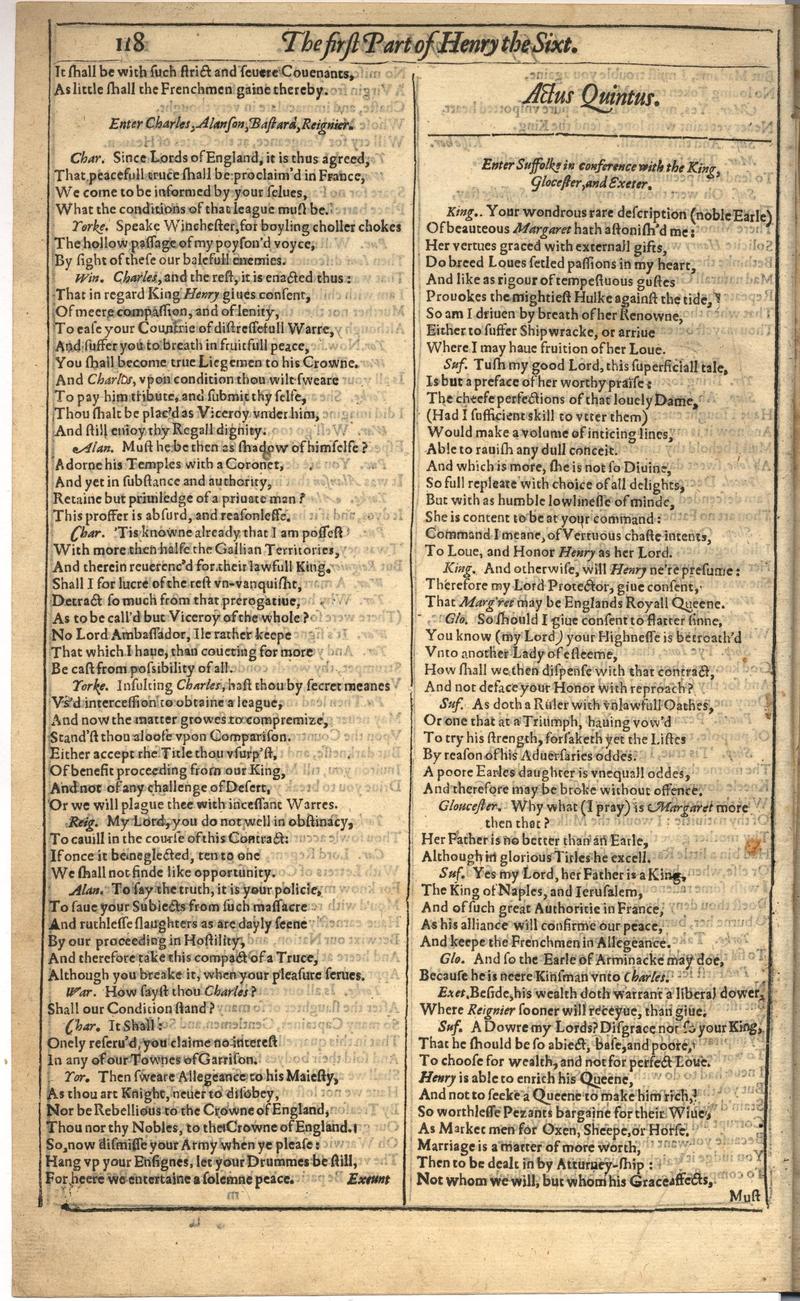 118
The first Part of Henry the Sixt.
It shall be with such strict and seuere Couenants,
As little shall the Frenchmen gaine thereby.
Enter Charles, Alanson, Bastard, Reignier.
Char. Since Lords of England, it is thus agreed,
That peacefull truce shall be proclaim'd in France,
We come to be informed by your selues,
What the conditions of that league must be.
Yorke. Speake Winchester, for boyling choller chokes
The hollow passage of my poyson'd voyce,
By sight of these our balefull enemies.
Win. Charles, and the rest, it is enacted thus:
That in regard King Henry giues consent,
Of meere compassion, and of lenity,
To ease your Countrie of distressefull Warre,
And suffer you to breath in fruitfull peace,
You shall become true Liegemen to his Crowne.
And Charles, vpon condition thou wilt sweare
To pay him tribute, and submit thy selfe,
Thou shalt be plac'd as Viceroy vnder him,
And still enioy thy Regall dignity.
Alan. Must he be then as shadow of himselfe?
Adorne his Temples with a Coronet,
And yet in substance and authority,
Retaine but priuiledge of a priuate man?
This proffer is absurd, and reasonlesse.
Char. 'Tis knowne already that I am possest
With more then halfe the Gallian Territories,
And therein reuerenc'd for their lawfull King.
Shall I for lucre of the rest vn-vanquisht,
Detract so much from that prerogatiue,
As to be call'd but Viceroy of the whole?
No Lord Ambassador, Ile rather keepe
That which I haue, than coueting for more
Be cast from possibility of all.
Yorke. Insulting Charles, hast thou by secret meanes
Vs'd intercession to obtaine a league,
And now the matter growes to compremize,
Stand'st thou aloofe vpon Comparison.
Either accept the Title thou vsurp'st,
Of benefit proceeding from our King,
And not of any challenge of Desert,
Or we will plague thee with incessant Warres.
Reig. My Lord, you do not well in obstinacy,
To cauill in the course of this Contract:
If once it be neglected, ten to one
We shall not finde like opportunity.
Alan. To say the truth, it is your policie,
To saue your Subiects from such massacre
And ruthlesse slaughters as are dayly seene
By our proceeding in Hostility,
And therefore take this compact of a Truce,
Although you breake it, when your pleasure serues.
War. How sayst thou Charles?
Shall our Condition stand?
Char. It Shall:
Onely reseru'd, you claime no interest
In any of our Townes of Garrison.
Yor. Then sweare Allegeance to his Maiesty,
As thou art Knight, neuer to disobey,
Nor be Rebellious to the Crowne of England,
Thou nor thy Nobles, to the Crowne of England.
So, now dismisse your Army when ye please:
Hang vp your Ensignes, let your Drummes be still,
For heere we entertaine a solemne peace. Exeunt
Actus Quintus.
Enter Suffolke in conference with the King,
Glocester, and Exeter.
King. Your wondrous rare description (noble Earle)
Of beauteous Margaret hath astonish'd me:
Her vertues graced with externall gifts,
Do breed Loues setled passions in my heart,
And like as rigour of tempestuous gustes
Prouokes the mightiest Hulke against the tide,
So am I driuen by breath of her Renowne,
Either to suffer Shipwracke, or arriue
Where I may haue fruition of her Loue.
Suf. Tush my good Lord, this superficiall tale,
Is but a preface of her worthy praise:
The cheefe perfections of that louely Dame,
(Had I sufficient skill to vtter them)
Would make a volume of inticing lines,
Able to rauish any dull conceit.
And which is more, she is not so Diuine,
So full repleate with choice of all delights,
But with as humble lowlinesse of minde,
She is content to be at your command:
Command I meane, of Vertuous chaste intents,
To Loue, and Honor Henry as her Lord.
King. And otherwise, will Henry ne're presume:
Therefore my Lord Protector, giue consent,
That Marg'ret may be Englands Royall Queene.
Glo. So should I giue consent to flatter sinne,
You know (my Lord) your Highnesse is betroath'd
Vnto another Lady of esteeme,
How shall we then dispense with that contract,
And not deface your Honor with reproach?
Suf. As doth a Ruler with vnlawfull Oathes,
Or one that at a Triumph, hauing vow'd
To try his strength, forsaketh yet the Listes
By reason of his Aduersaries oddes.
A poore Earles daughter is vnequall oddes,
And therefore may be broke without offence.
Gloucester. Why what (I pray) is Margaret more
then that?
Her Father is no better than an Earle,
Although in glorious Titles he excell.
Suf. Yes my Lord, her Father is a King,
The King of Naples, and Ierusalem,
And of such great Authoritie in France,
As his alliance will confirme our peace,
And keepe the Frenchmen in Allegeance.
Glo. And so the Earle of Arminacke may doe,
Because he is neere Kinsman vnto Charles.
Exet. Beside, his wealth doth warrant a liberal dower,
Where Reignier sooner will receyue, than giue.
Suf. A Dowre my Lords? Disgrace not so your King,
That he should be so abiect, base, and poore,
To choose for wealth, and not for perfect Loue.
Henry is able to enrich his Queene,
And not to seeke a Queene to make him rich,
So worthlesse Pezants bargaine for their Wiues,
As Market men for Oxen, Sheepe, or Horse.
Marriage is a matter of more worth,
Then to be dealt in by Atturney-ship:
Not whom we will, but whom his Grace affects,
Must